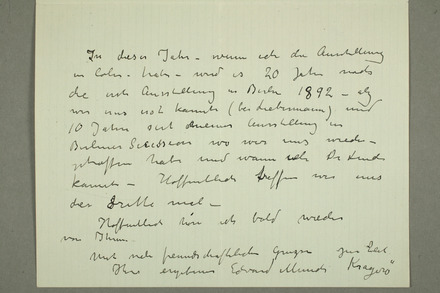 In dieser Jahr – wenn ich die Ausstellung
in Coln – habe – wird es 20 Jahr nach
die erste Ausstellung in Berlin 1892 – als
wir uns erst kannte (bei Liebermann) und
10 Jahre seit meiner Ausstellung in
Berliner Secession wo wir uns wieder-
getroffen habe und wann ich Dr Linde
kannte – Hoffentlich treffen wir uns
der dritte mal –
Hoffentlich hör ich bald wieder
von Ihnen.
Mit viele freundschaftliche Grüsse zur Zeit
Ihre ergebener Edvard Munch Kragerö